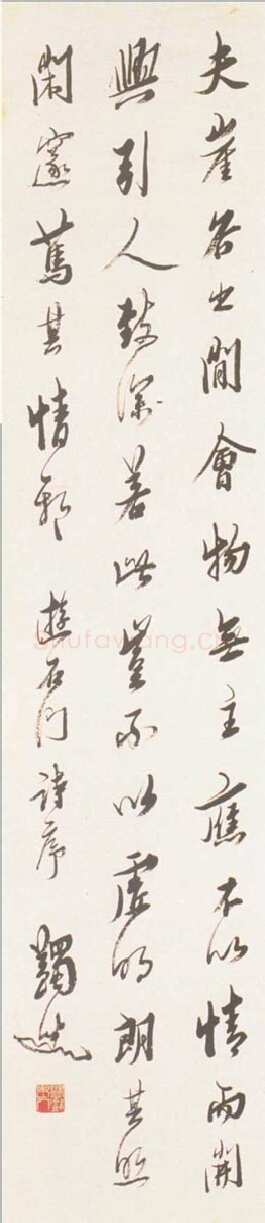 夫崖谷之間會物無主應不以情而開
興引人致深若此豈不以虛明朗其照
閑邃篤其情邪 遊石門詩序 蠲叟